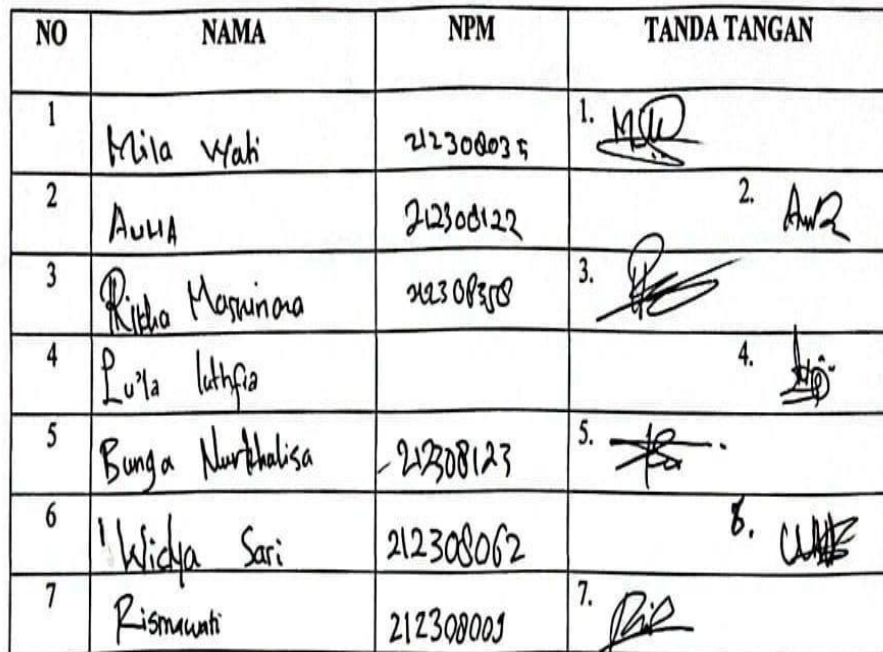 NO NAMA NPM TANDA TANGAN
1 Mila Wati 212308035 1.
2 AULIA 212308122 2.
3 3.
4 Lu'la luthfia 4.
5 Bunga Nurkhalisa 212308123 5.
6 Widya Sari 212308062 6.
7 Rismawati 212308009 7.